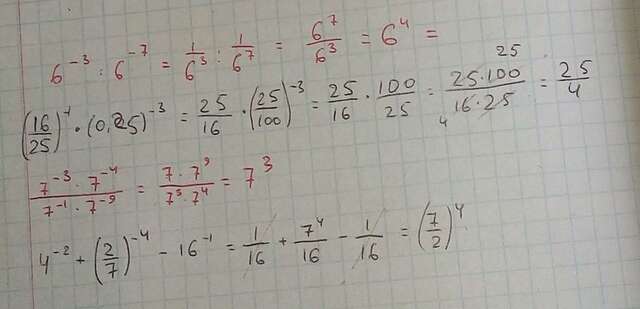 6^{-3} : 6^{-7} = \frac{1}{6^3} : \frac{1}{6^7} = \frac{6^7}{6^3} = 6^4 =
\left(\frac{16}{25}\right)^{-1} \cdot (0,25)^{-3} = \frac{25}{16} \cdot \left(\frac{25}{100}\right)^{-3} = \frac{25}{16} \cdot \frac{100}{25} = \frac{\overset{25}{25 \cdot 100}}{\underset{4}{16 \cdot 25}} = \frac{25}{4}
\frac{7^{-3} \cdot 7^{-4}}{7^{-1} \cdot 7^{-9}} = \frac{7 \cdot 7^9}{7^3 \cdot 7^4} = 7^3
4^{-2} + \left(\frac{2}{7}\right)^{-4} - 16^{-1} = \frac{1}{16} + \frac{7^4}{16} - \frac{1}{16} = \left(\frac{7}{2}\right)^4